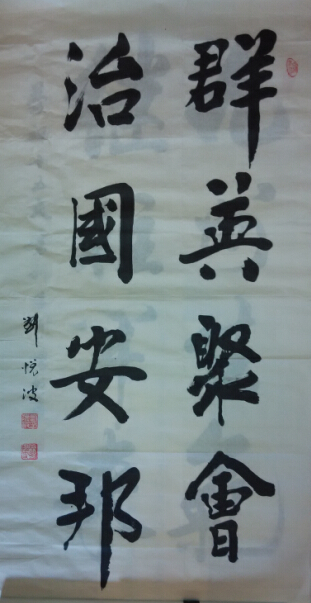 群英聚會
治國安邦
劉悦波